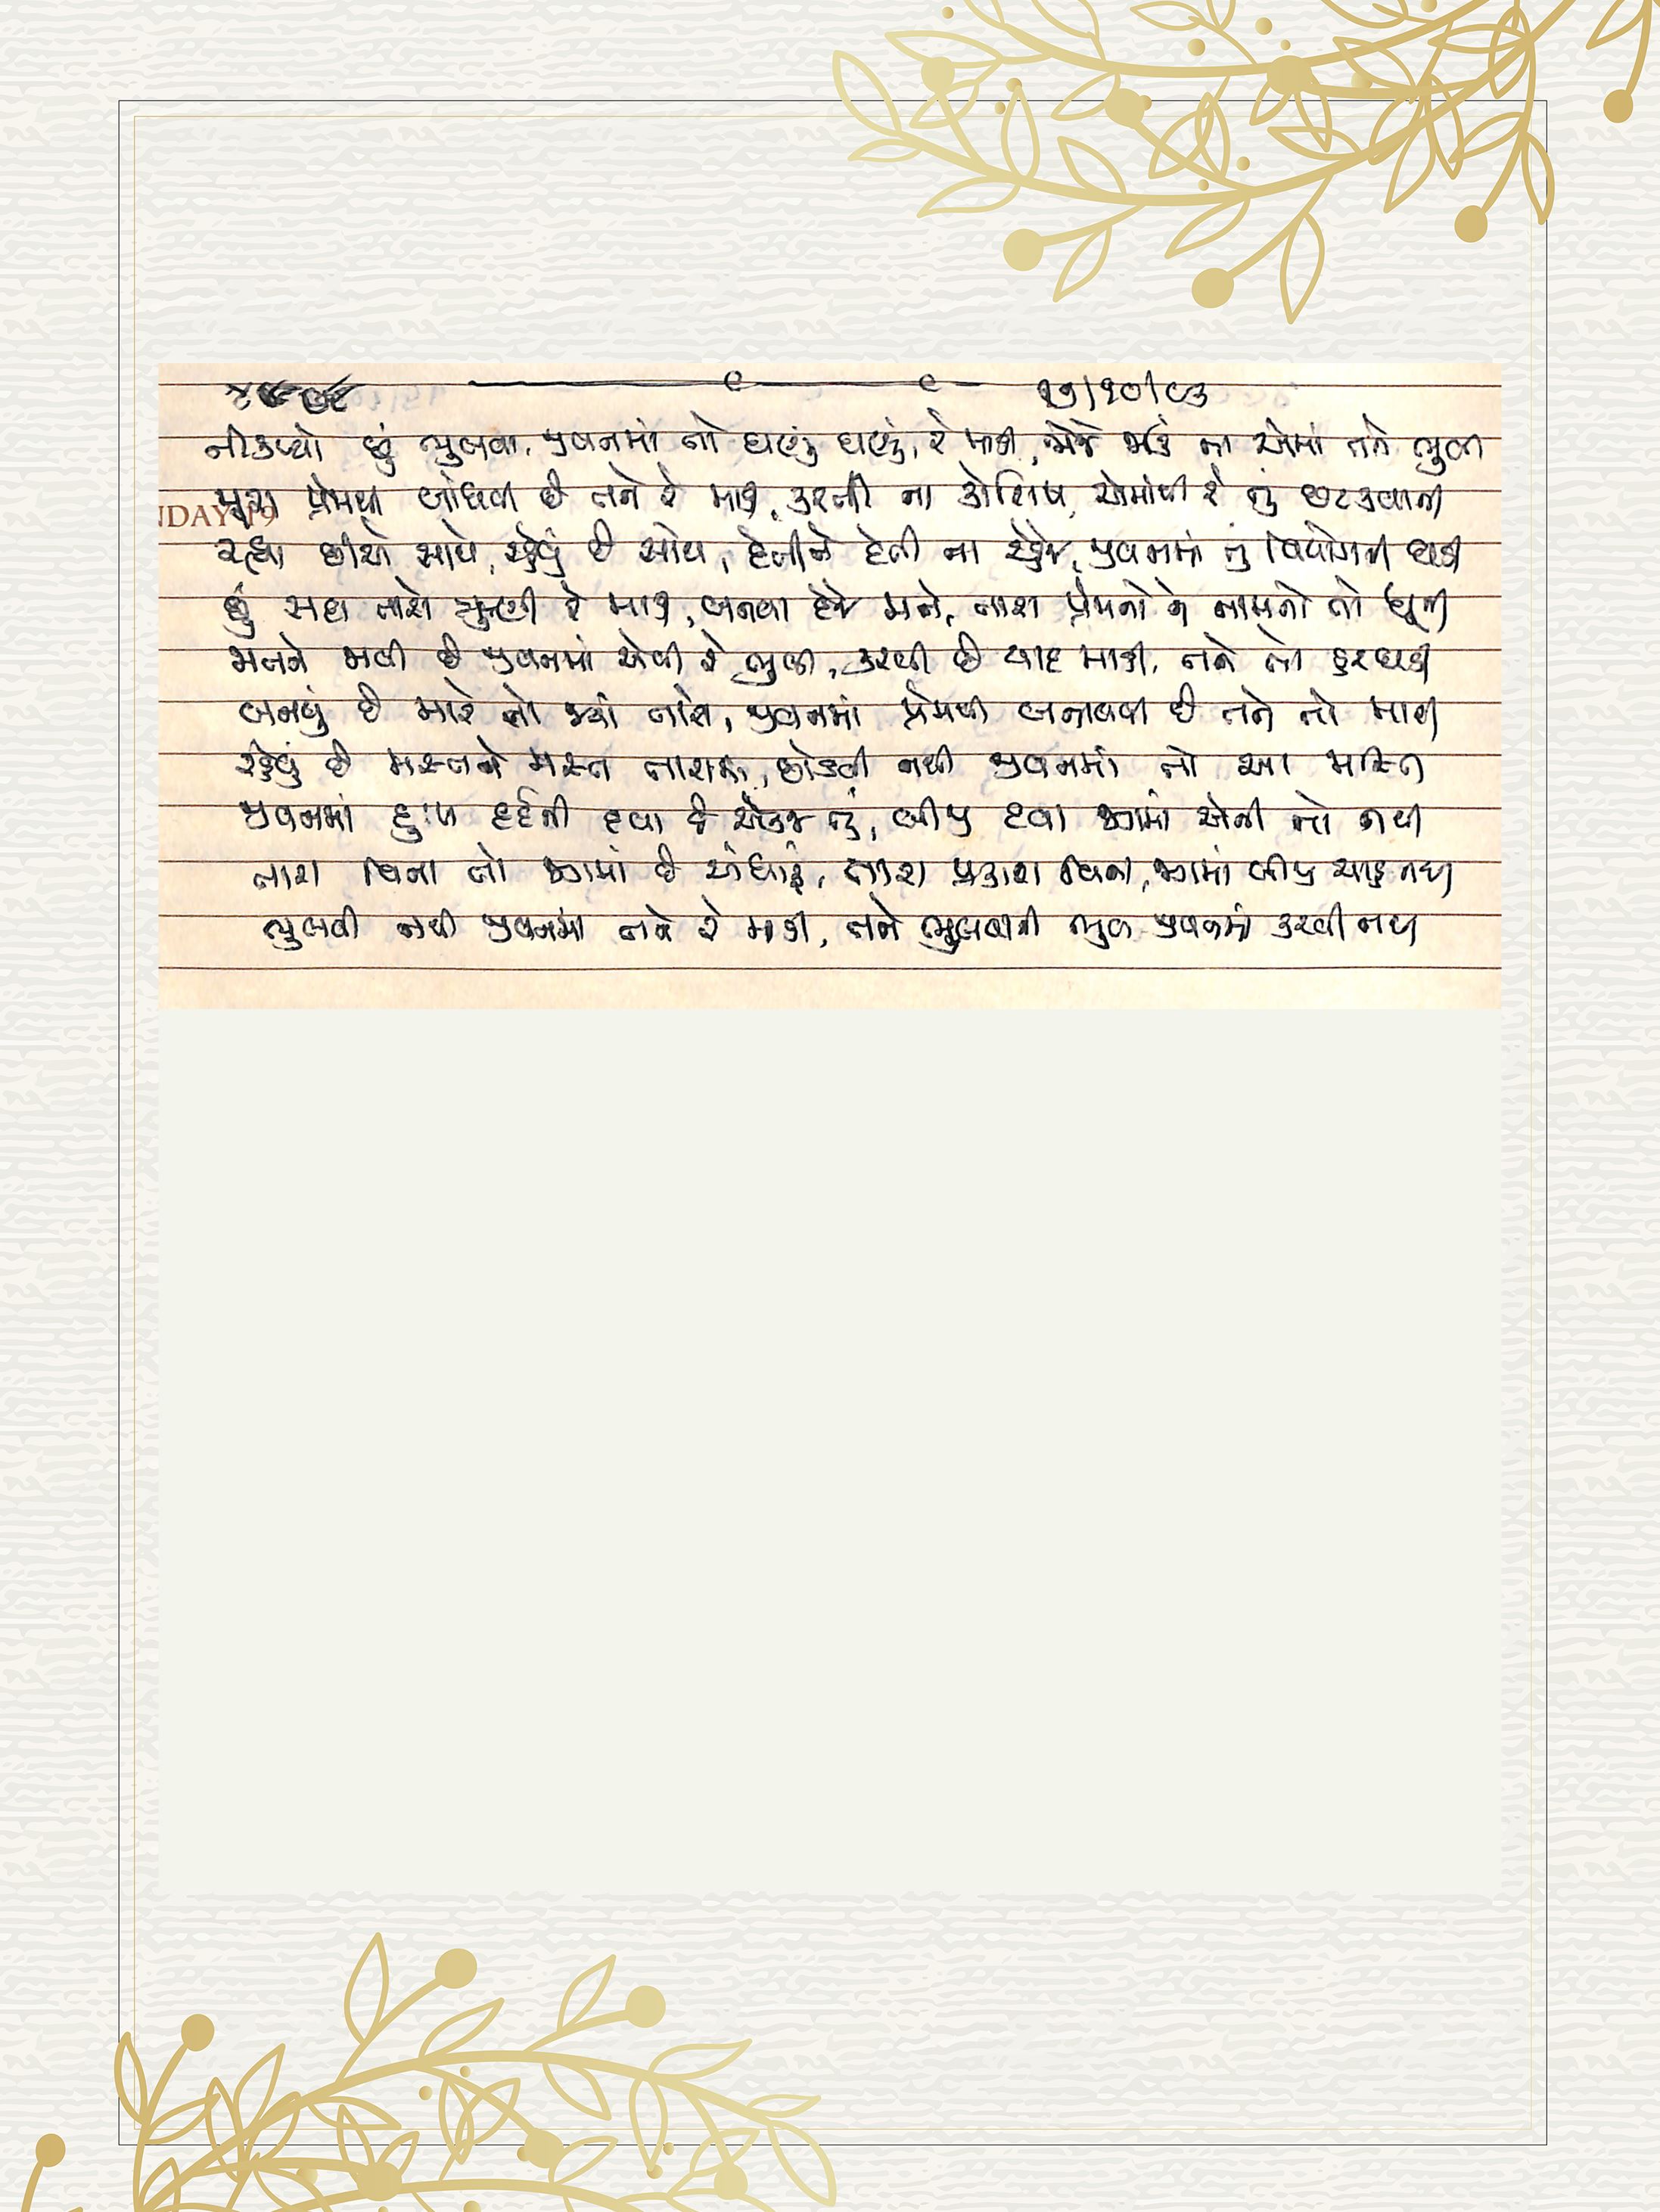 ૧૭/૧૦/૯૩
નીકળ્યો છું ભુલવા, જીવનમાં તો ઘણું ઘણું, રે માડી, જોજે જાઉં ના એમાં તને ભુલી
પ્રેમથી બાંધવી છે તને રે માડી, કરતી ના કોશિષ, એમાંથી રે તું છટકવાની
રહ્યા છીએ સાથે, રહેવું છે સાથ, દેતીને દેતી ના રહેજે, જીવનમાં તું વિયોગની ઘડી
છું સદા તારો ઋણી રે માડી, બનવા દેજે મને, તારા પ્રેમનો ને નામનો તો ધૂની
મનને મળી છે જીવનમાં એવી રે ભુલી, કરવી છે યાદ માડી, તને તો હરઘડી
બનવું છે મારે તો જ્યાં તારો, જીવનમાં પ્રેમથી બનાવવી છે તને તો મારી
રહેવું છે મસ્તને મસ્ત તારામાં, છોડવી નથી જીવનમાં તો આ મસ્તિ
જીવનમાં દુઃખ દર્દની દવા છે એકજ તું, બીજી દવા જગમાં એની તો નથી
તારા વિના તો જગમાં છે અંધારું, તારા પ્રકાશ વિના, જગમાં બીજું કાંઈ નથી
ભુલવી નથી જીવનમાં તને રે માડી, તને ભુલવાની ભુલ જીવનમાં કરવી નથી